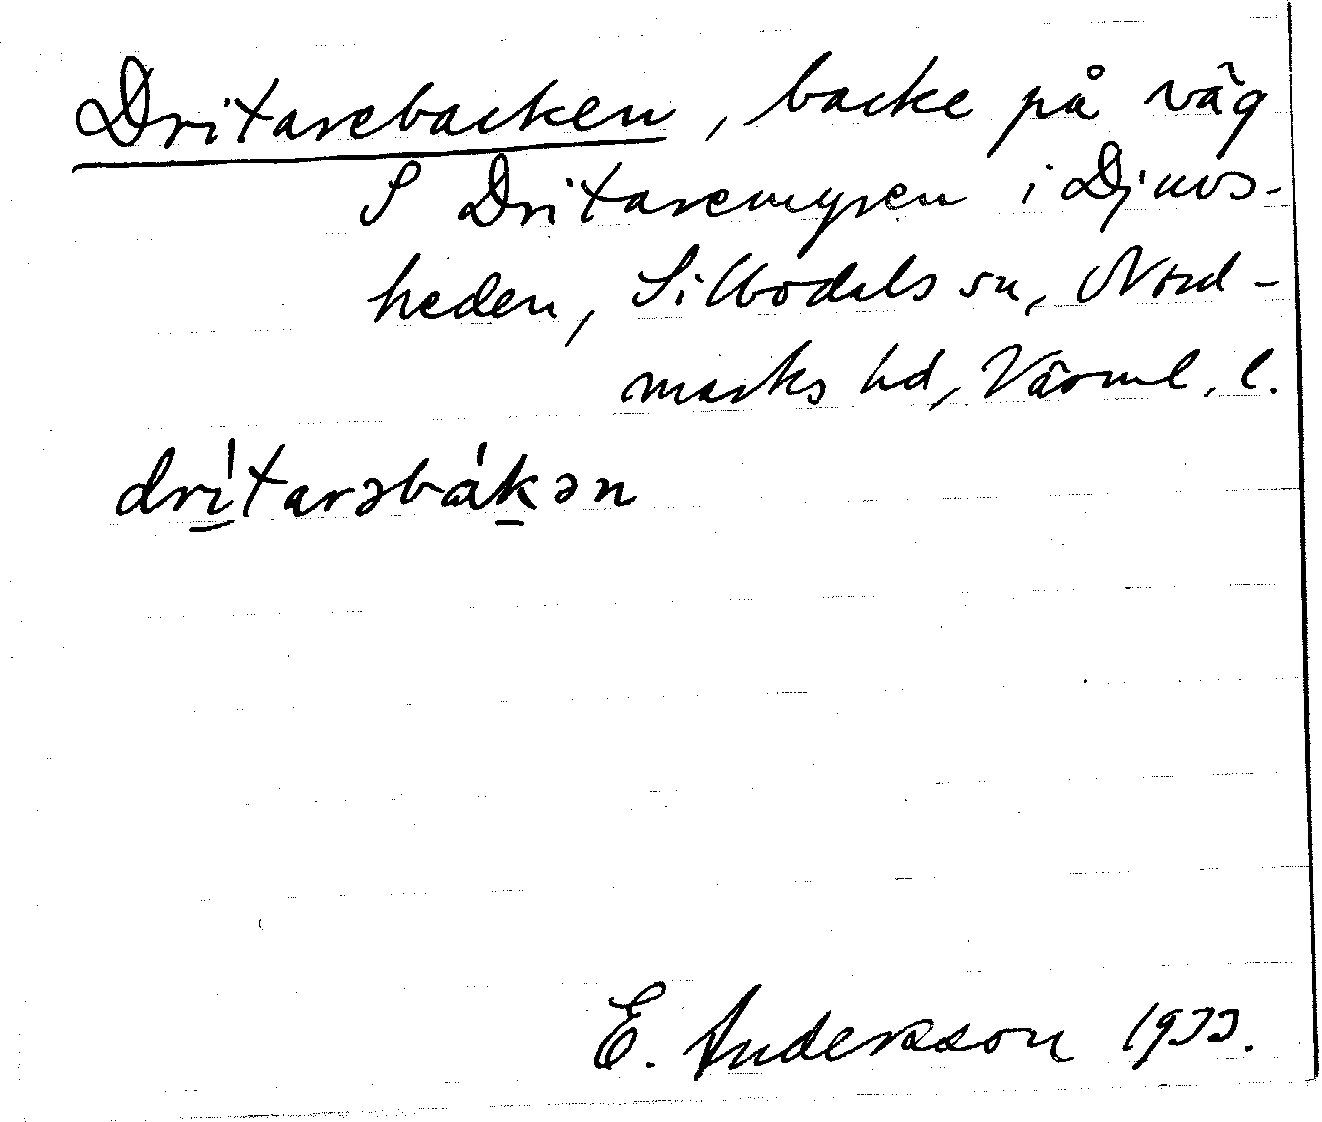 Dritarebacken, backe på väg
S Dritaremyren i Djuvs-
heden, Silbodals sn, Nord-
marks hd, Värml. l.
drí̲tarəbák̲ən
E. Andersson 1933.